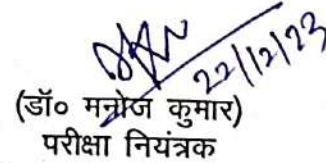 22/12/23
(डॉ० मनोज कुमार)
परीक्षा नियंत्रक